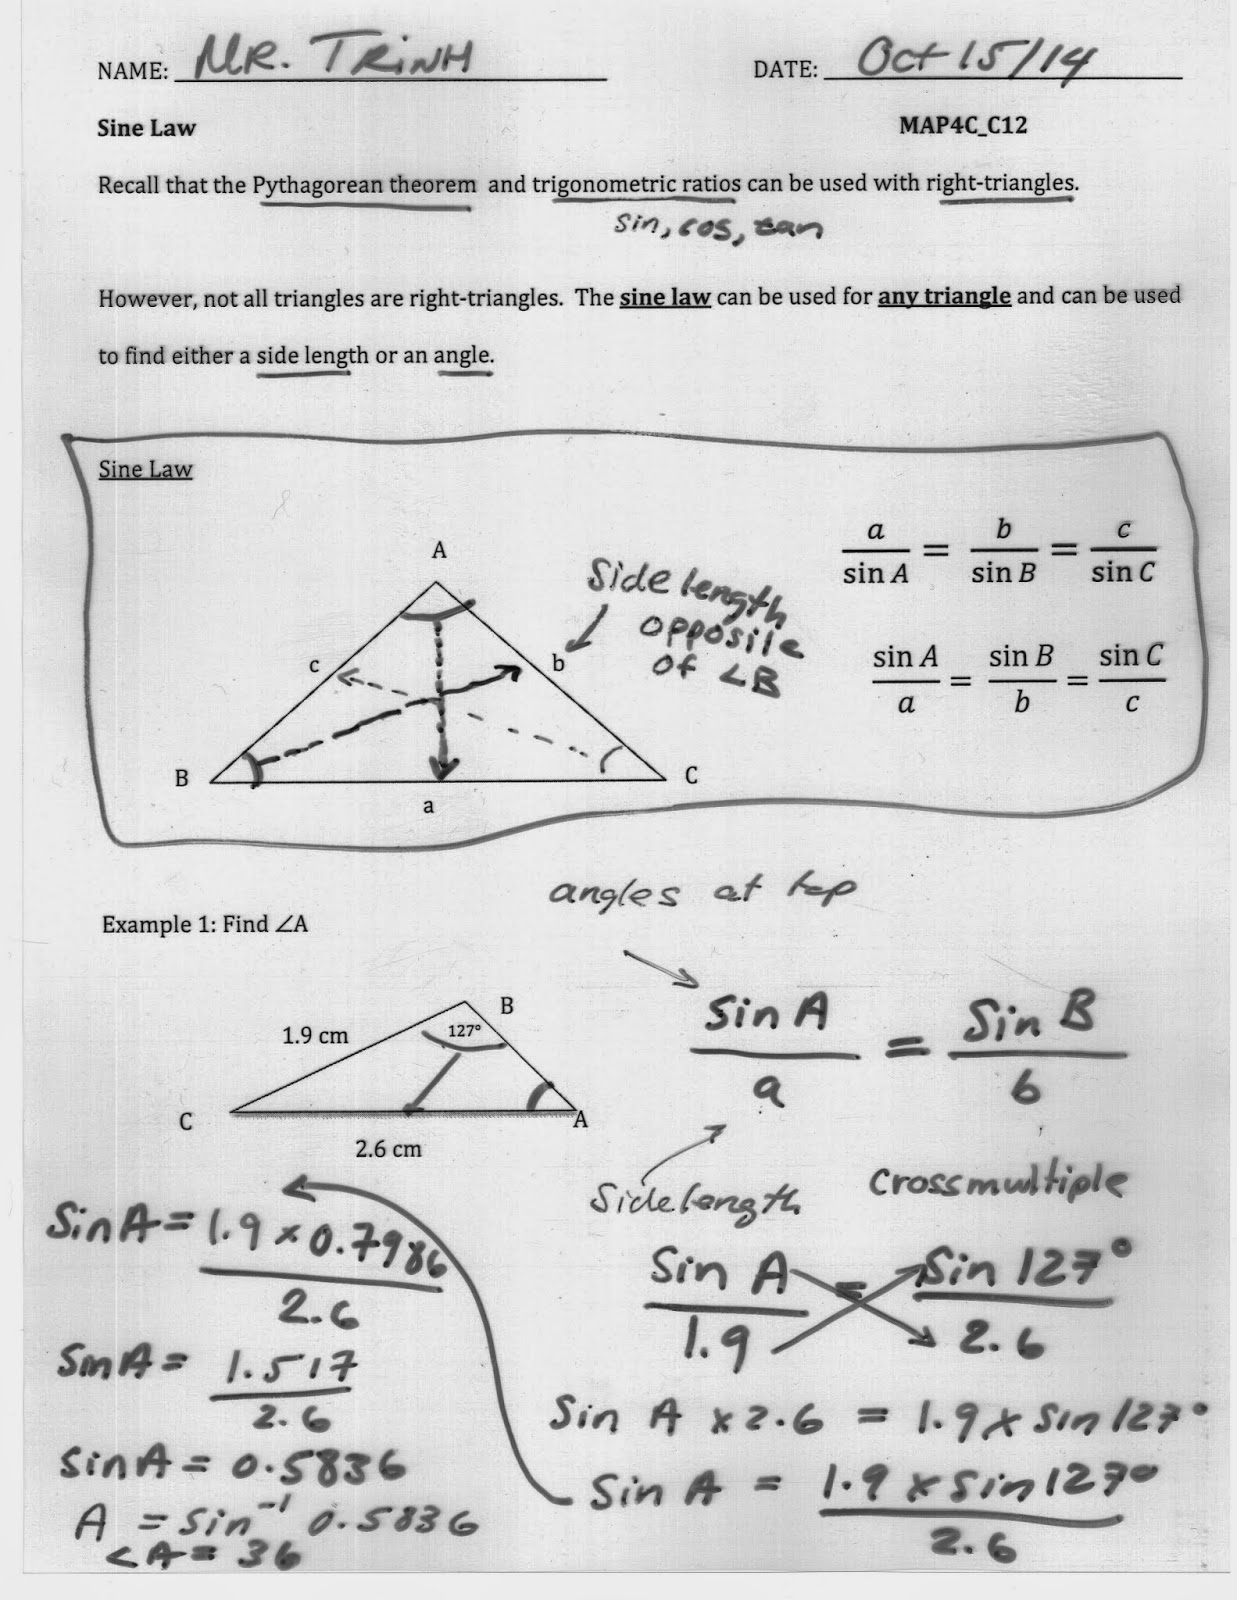 NAME: MR. TRINH DATE: Oct 15/14
Sine Law MAP4C_C12
Recall that the Pythagorean theorem and trigonometric ratios can be used with right-triangles.
sin, cos, tan
However, not all triangles are right-triangles. The sine law can be used for any triangle and can be used
to find either a side length or an angle.
Sine Law
A
B
C
c
b
a
Side length
opposite
of ∠B
a/sin A = b/sin B = c/sin C
sin A/a = sin B/b = sin C/c
angles at top
Example 1: Find ∠A
B
127°
1.9 cm
C
A
2.6 cm
sin A/a = Sin B/b
Side length
Crossmultiple
Sin A/1.9 = Sin 127°/2.6
Sin A x 2.6 = 1.9 x Sin 127°
Sin A = 1.9 x Sin 127°/2.6
Sin A = 1.9 x 0.7986/2.6
Sin A = 1.517/2.6
sin A = 0.5836
A = sin⁻¹ 0.5836
∠A = 36